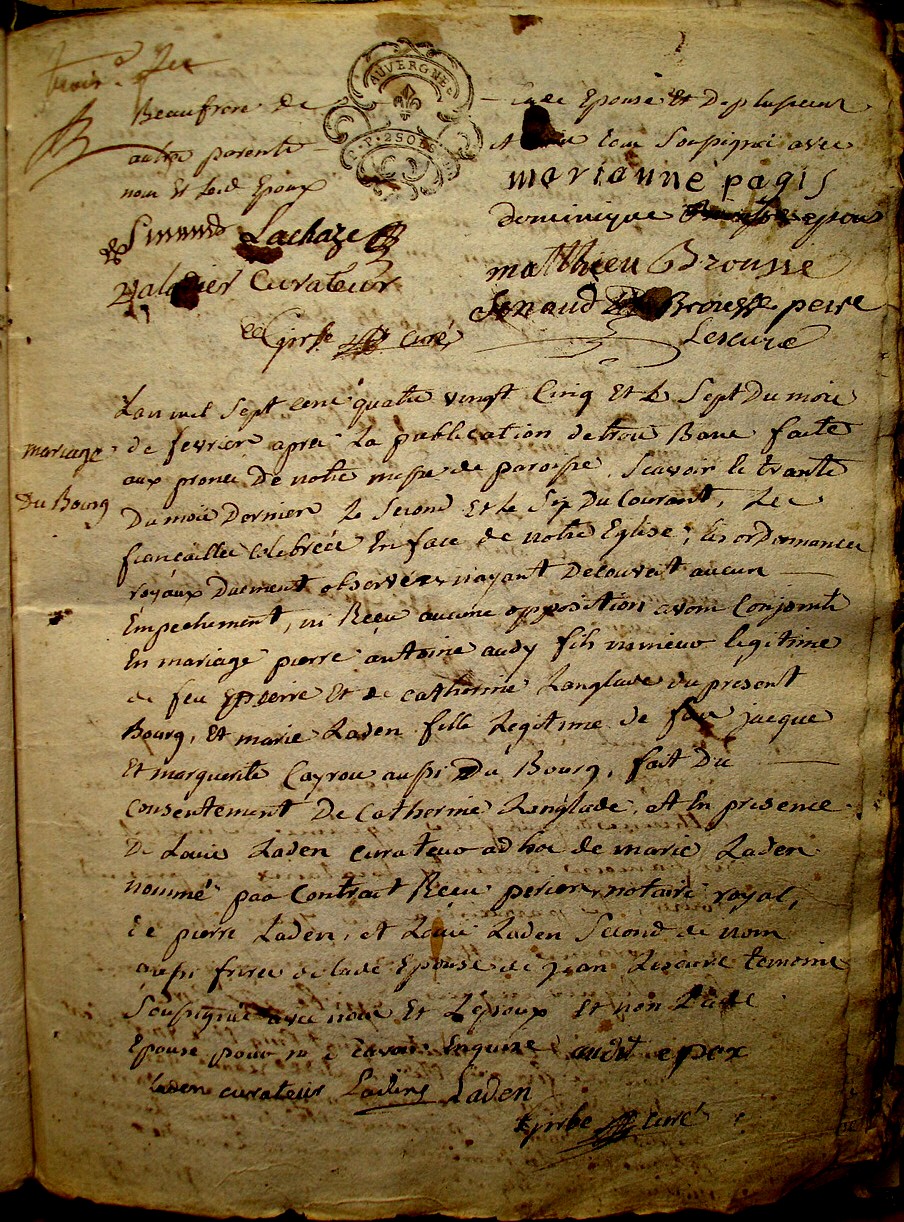 AUVERGNE
Beaufrere de
autre parents
nous Et led Epoux
Lachaze
Curateur
Girbe curé
Epouse Et De plusieurs
Soussigné avec
marianne pagis
dominique epous
matthieu Brousse
Brousse peire
Lescure
mariage
Du Bourg
Lan mil Sept cent quatre vingt Cinq Et le Sept Du mois
de fevrier apres La publication de trois Bans faite
aux prone De notre messe de paroisse, Scavoir le trante
Du mois Dernier le Second Et le Six Du Courant, Les
fiancailles celebrées En face de notre Eglise; les ordonnances
royaux Duement observées nayant Decouvert aucun
Empechement, ni Reçu aucune opposition avons Conjoints
En mariage pierre antoine audy fils mineur legitime
de feu pierre Et de catherine Langlade du present
Bourg, Et marie Laden fille Legitime de feu jacque
Et marguerite Cayrou aussi Du Bourg, fait Du
Consentement De Catherine Langlade, et En presence
De Louis Laden curateur ad hoc de marie Laden
nommé par Contrat Reçu perier notaire royal,
De pierre Laden, et Louis Laden Second de nom
aussi freres de lade Epouse de jean Lescure temoins
Soussignés avec nous Et Lepoux Et non Lade
Epouse pour ne Scavoir Enquise audit epox
Laden curateur Ladens Laden
Girbe curé